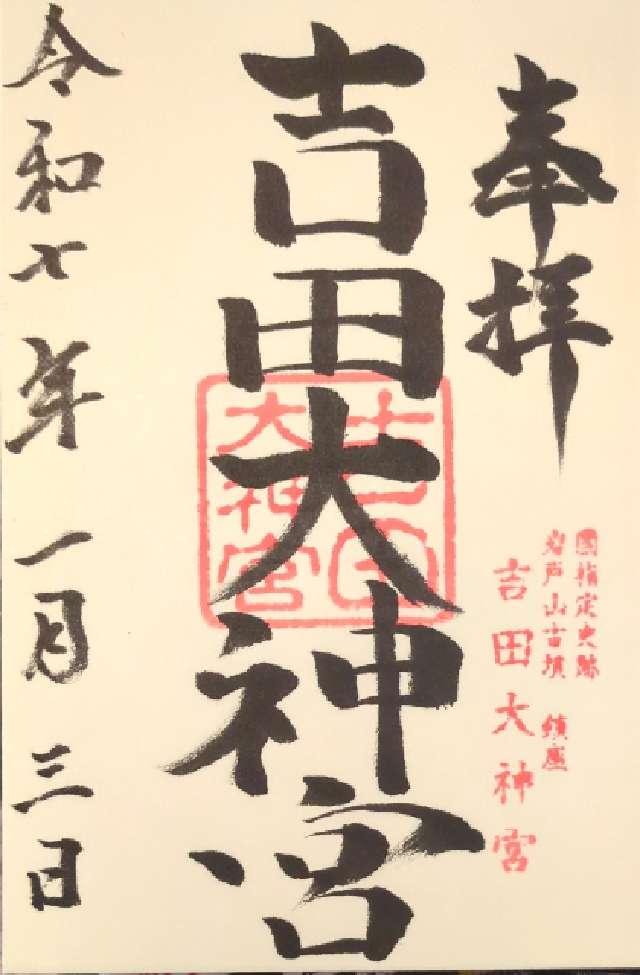 奉拝
國指定史跡
岩戸山古墳 鎮座
吉田大神宮
吉田大神宮
吉田
大神宮
令和七年一月三日